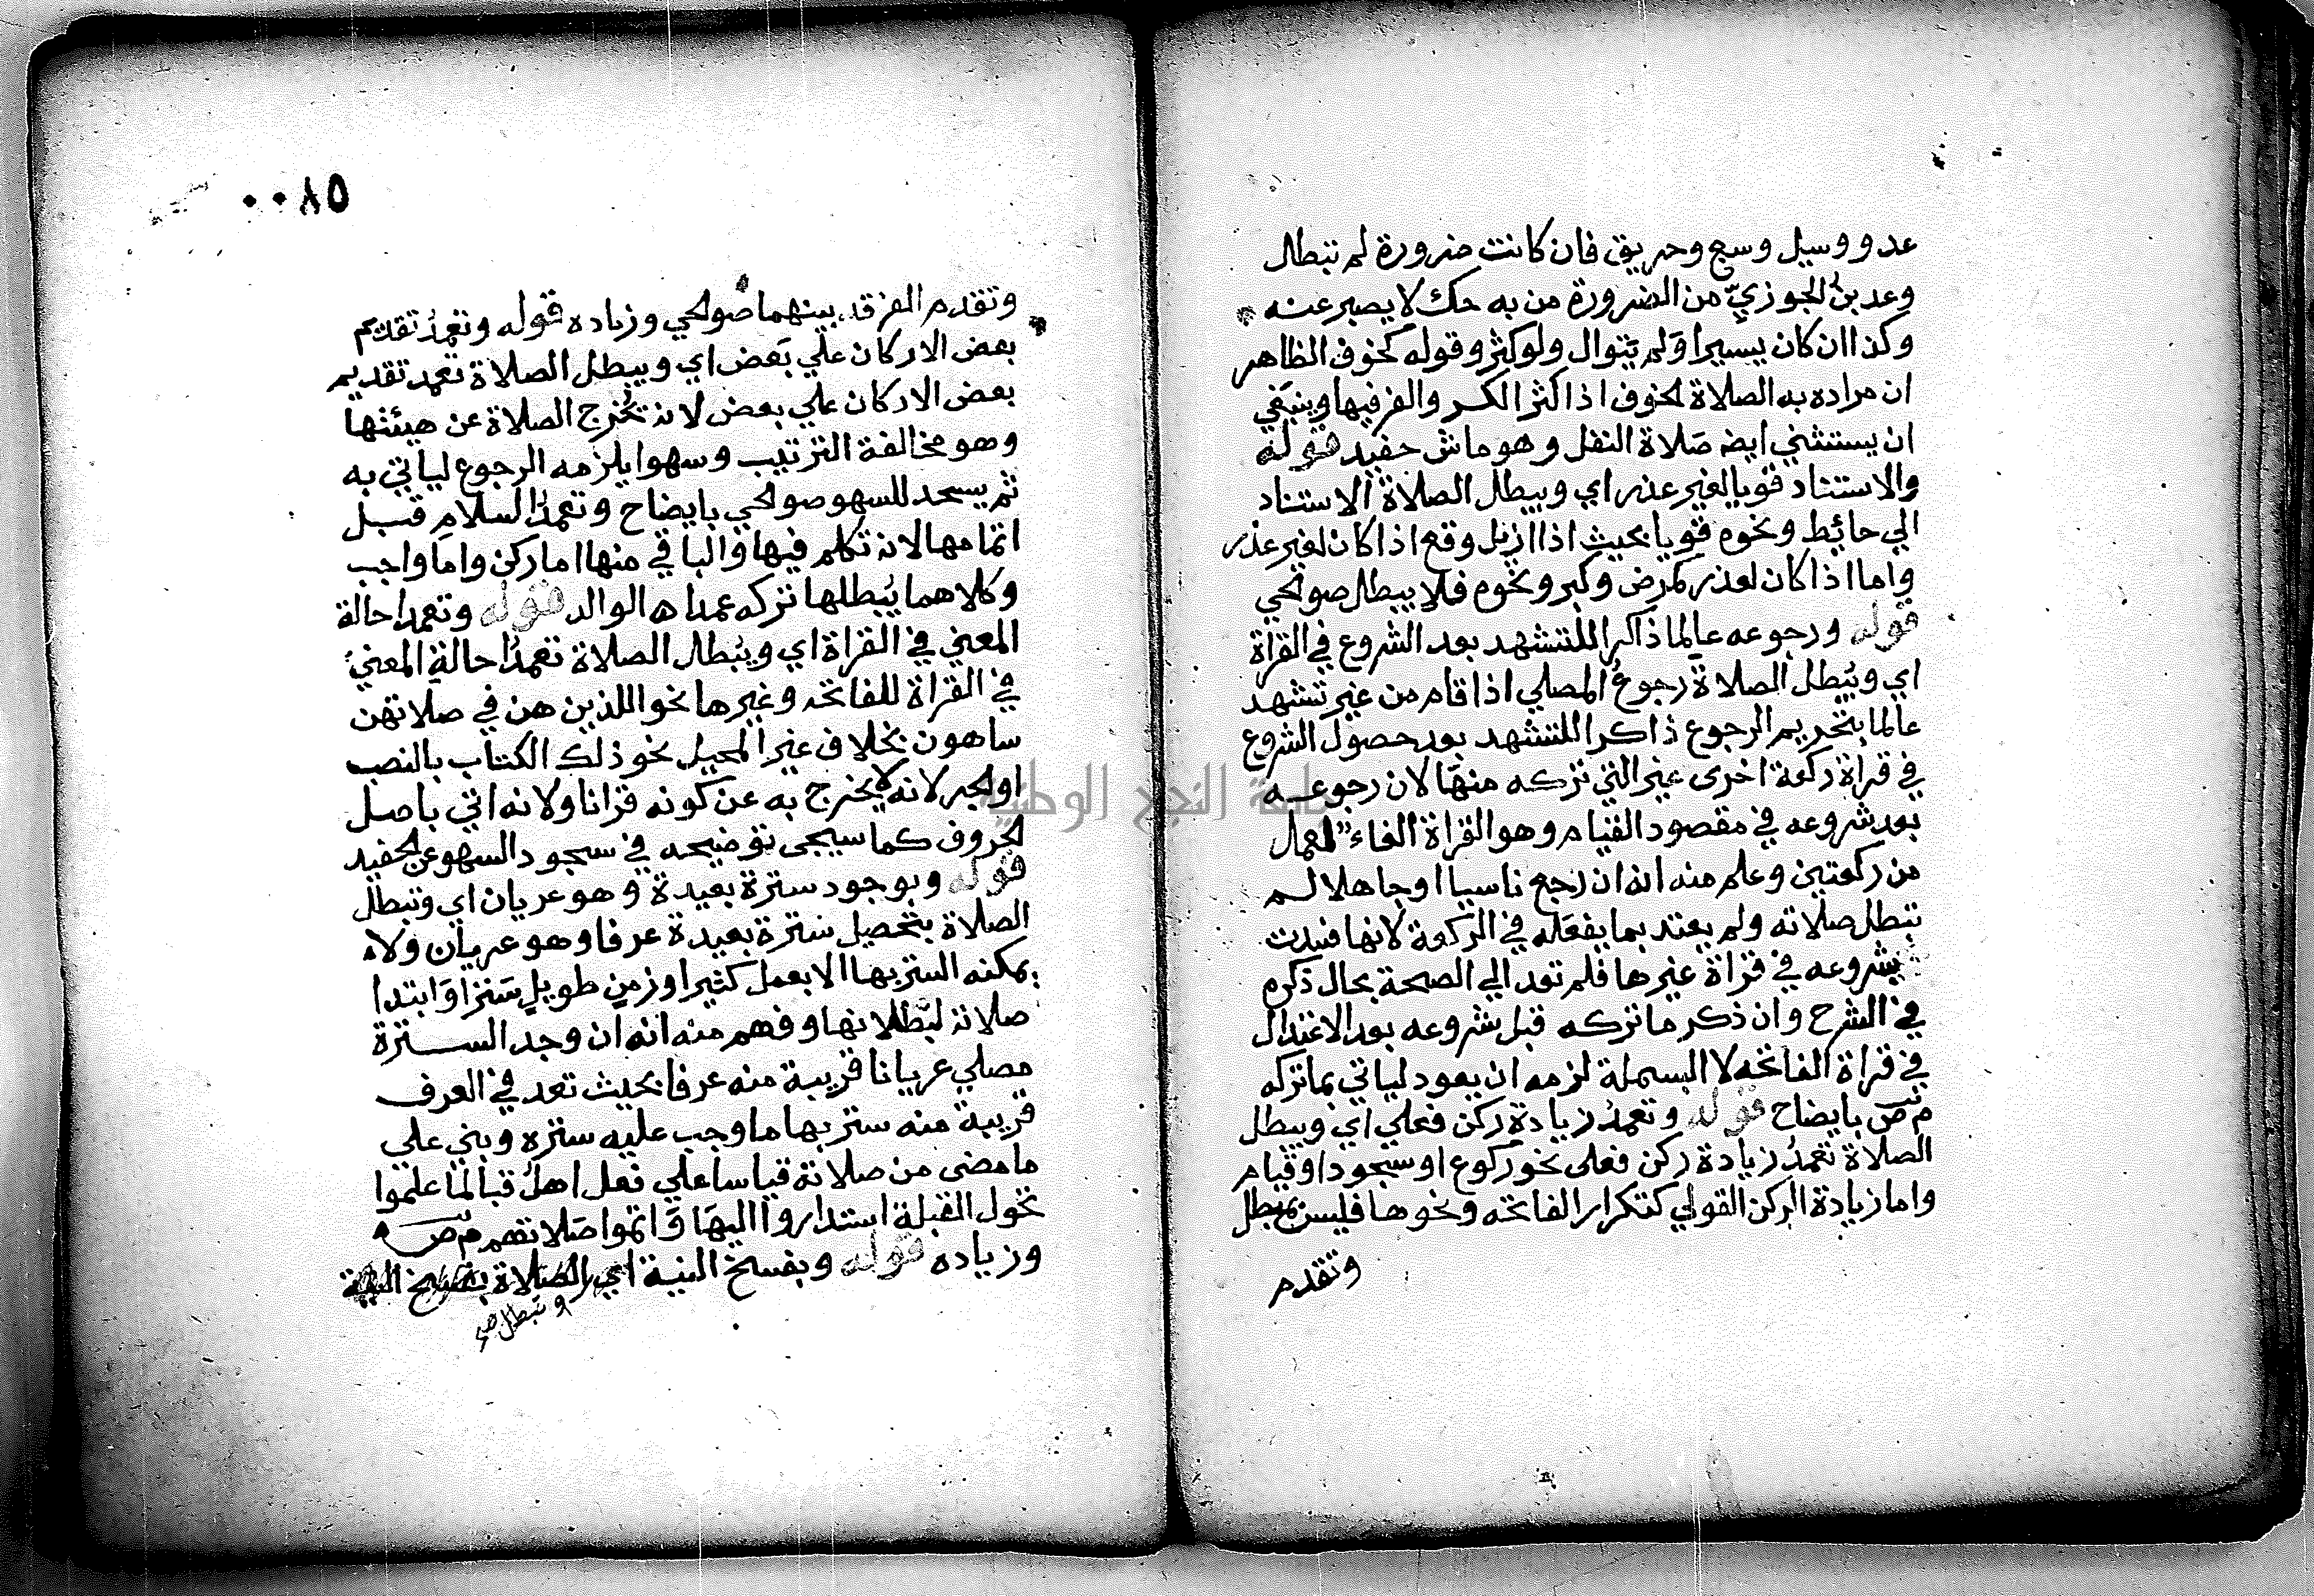 عدو وسيل وسبع وحريق فان كانت ضرورة لم تبطل
وعد بن الجوزي من الضرورة من به حك لا يصبر عنه
وكذا ان كان يسيرا ولم يتوال ولو كثر وقوله كخوف الظاهر
ان مراده به الصلاة لخوف اذا كثر الكر والفر فيها وينبغي
ان يستثني ايضه صلاة النفل وهو ماش حفيد قوله
والاستناد قويا لغير عذر اي ويبطل الصلاة الاستناد
الي حائيط ونحوه قويا بحيث اذا ازيل وقع اذا كان لغير عذر
واما اذا كان لعذر كمرض وكبر ونحوه فلا يبطل صوالحي
قوله ورجوعه عالما ذاكرا للتشهد بعد الشروع في القراة
اي ويبطل الصلاة رجوع المصلي اذا قام من غير تشهد
عالما بتحريم الرجوع ذاكرا للتشهد بعد حصول الشروع
في قراة ركعة اخرى غير التي تركه منها لان رجوعه
بعد شروعه في مقصود القيام وهو القراة الغاء لعمل
من ركعتين وعلم منه انه ان رجع ناسيا او جاهلا لم
تبطل صلاته ولم يعتد بما يفعله في الركعة لانها فسدت
بشروعه في قراة غيرها فلم تعد الي الصحة بحال ذكره
في الشرح وان ذكر ما تركه قبل شروعه بعد الاعتدال
في قراة الفاتحه لا البسملة لزمه ان يعود لياتي بما تركه
م ص بايضاح قوله وتعمد زيادة ركن فعلي اي ويبطل
الصلاة تعمد زيادة ركن فعلى نحو ركوع او سجود او قيام
واما زيادة الركن القولي كتكرار الفاتحه ونحوها فليس بمبطل
وتقدم
٠٠٨٥
وتقدم الفرقد بينهما صوالحي وزياده قوله وتعمد تقديم
بعض الاركان علي بعض اي ويبطل الصلاة تعمد تقديم
بعض الاركان علي بعض لانه تخرج الصلاة عن هيئتها
وهو مخالفة الترتيب وسهوا يلزمه الرجوع لياتي به
ثم يسجد للسهو صوالحي بايضاح وتعمد السلام قبل
اتمامها لانه تكلم فيها والباقي منها اما ركن واما واجب
وكلاهما يبطلها تركه عمدا ه الوالد قوله وتعمد احالة
المعني في القراة اي ويبطل الصلاة تعمد احالة المعني
في القراة للفاتحه وغيرها نحو اللذين هن في صلاتهن
ساهون بخلاف غير المحيل نحو ذلك الكتاب بالنصب
او الجر لانه لا يخرج به عن كونه قرانا ولانه اتي باصل
الحروف كما سيجى توضيحه في سجود السهو عن الحفيد
قوله وبوجود سترة بعيدة وهو عريان اي وتبطل
الصلاة بتحصيل سترة بعيدة عرفا وهو عريان ولا
يمكنه الستر بها الا بعمل كثير او زمن طويل ستر او ابتدا
صلاته لبطلانها وفهم منه انه ان وجد السترة
مصلي عريانا قريبة منه عرفا بحيث تعد في العرف
قريبة منه ستر بها ما وجب عليه ستره وبني علي
ما مضى من صلاته قياسا علي فعل اهل قبا لما علموا
تحول القبلة استداروا اليها واتموا صلاتهم م ص
وزياده قوله وبفسخ النية اي الصلاة بفسخ النية
وتبطل صح
جامعة النجاح الوطنية